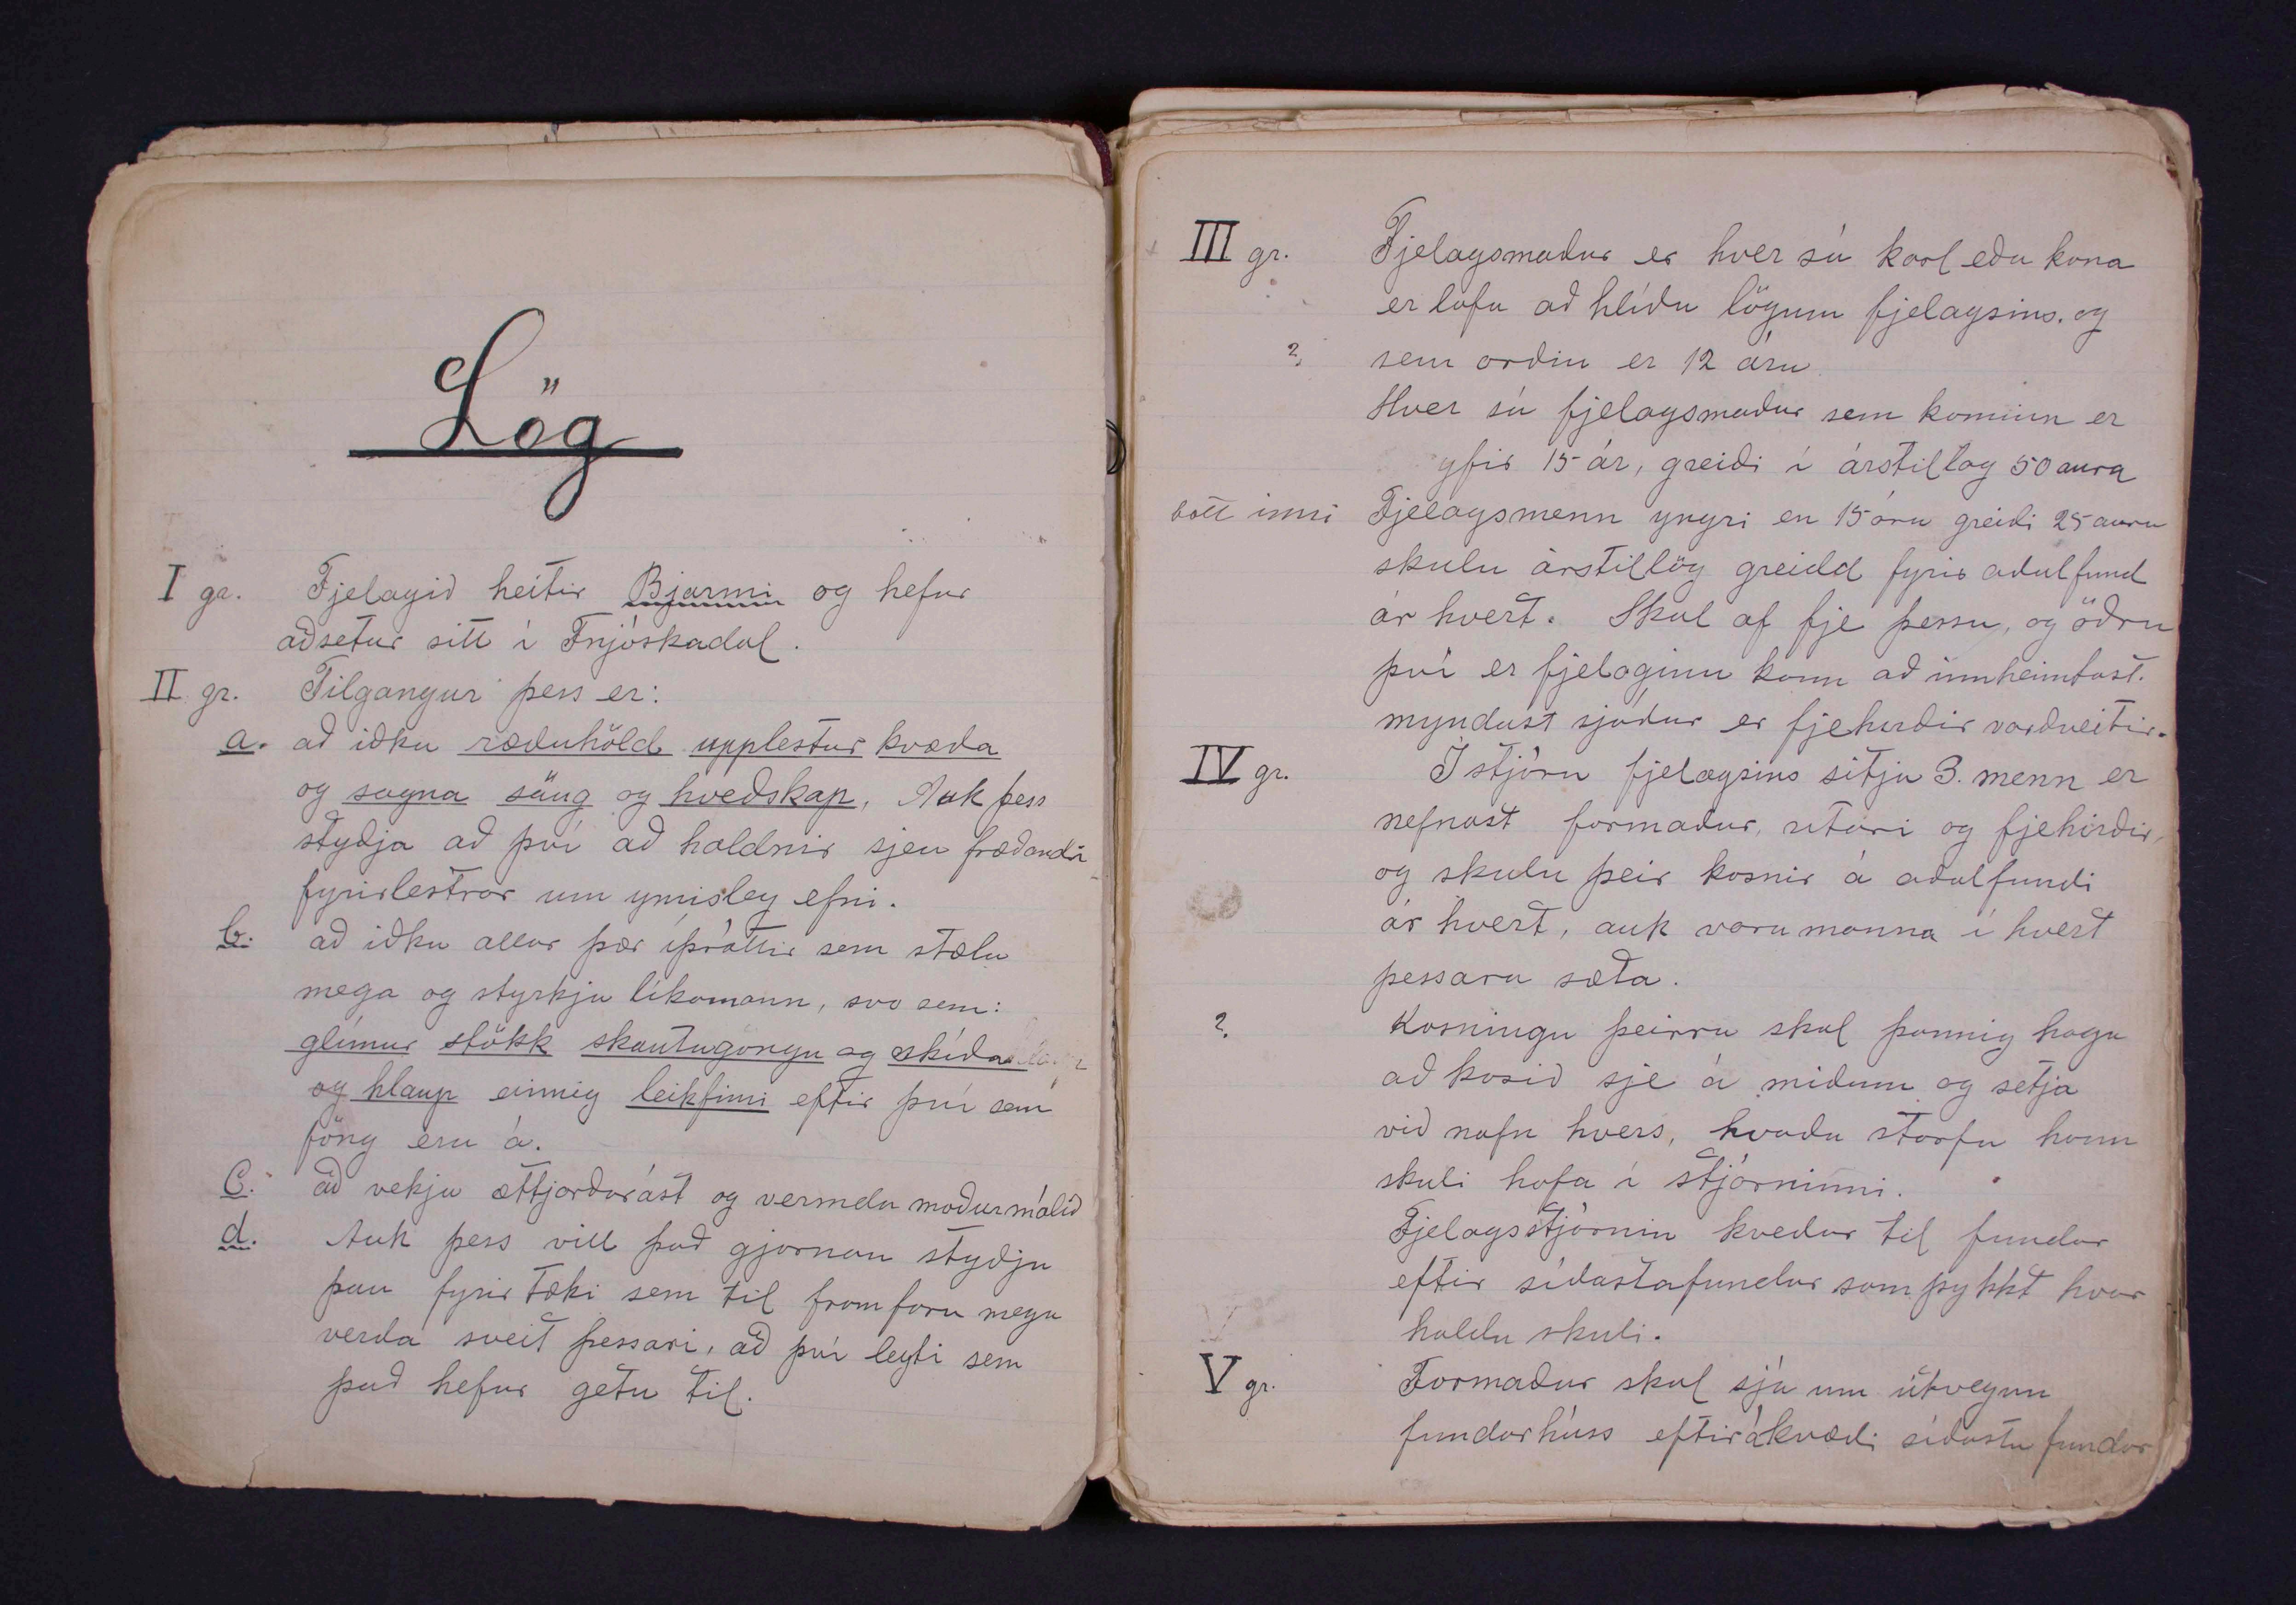 Lög
I gr. Fjelagið heitir Bjarmi og hefur
aðsetur sitt í Fnjóskadal.
II gr. Tilgangur þess er:
a. að iðka ræðuhöld upplestur kvæða
og sagna säng og kveðskap, Auk þess
styðja að því að haldnir sjeu fræðandi
fyrirlestrar um ymisleg efni.
b. að iðka allar þær íþróttir sem stæla
mega og styrkja líkamann, svo sem:
glímur stökk skautagöngu og skíða
og hlaup einnig leikfimi eftir því sem
föng eru á.
C. að vekja ættjarðarást og vernda moðurmálið
d. Auk þess vill það gjarnan styðja
þau fyrirtæki sem til framfara mega
verða sveit þessari, að því leyti sem
það hefur getu til.
III gr. Fjelagsmaður er hver sú karl eða kona
er lofa að hlíða lögum fjelagsins. og
? sem orðin er 12 ára
Hver sú fjelagsmaður sem kominn er
yfir 15 ár, greiði í árstillag 50 aura
inni Fjelagsmenn yngri en 15 ára greiði 25 aura
skulu árstillög greidd fyrir aðalfund
ár hvert. Skal af fje þessu, og öðru
því er fjelaginu kann að innheimtast.
myndast sjóður er fjehirðir varðveitir.
IV gr. Í stjórn fjelagsins sitja 3. menn er
nefnast formaður, ritari og fjehirðir,
og skulu þeir kosnir á aðalfundi
ár hvert, auk vara manna í hvert
þessara sæta.
? Kosningu þeirra skal þannig haga
að kosið sje á miðum og setja
við nafn hvers, hvaða starfa hann
skuli hafa í stjórninni.
Fjelagsstjórnin kveður til fundar
eftir síðastafundar samþykkt hvar
halda skuli.
V gr. Formaður skal sjá um útvegun
fundarhúss eftir ákvæði síðasta fundar